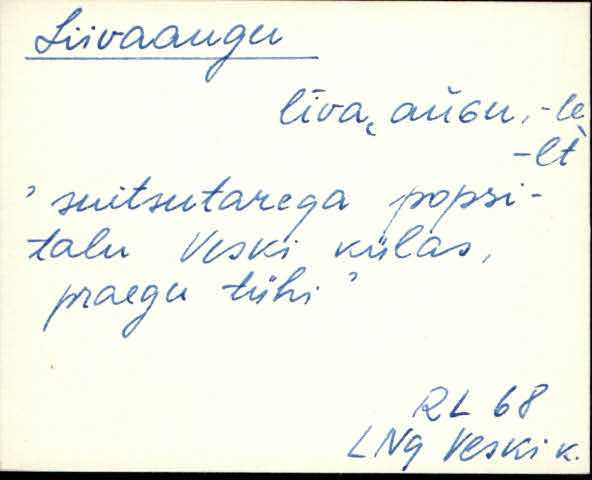 Liivaaugu
līva, aùGu, -le
-lt
' suitsutarega popsi-
talu Veski külas,
praegu tühi '
RL 68
LNg Veski k.